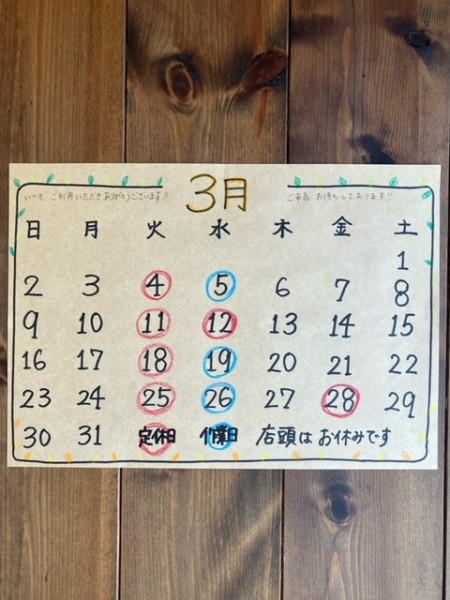 いつも ご利用いただき ありがとうございます!!
3月
ご来店 お待ちしております!!
日 月 火 水 木 金 土
1
2 3 4 5 6 7 8
9 10 11 12 13 14 15
16 17 18 19 20 21 22
23 24 25 26 27 28 29
30 31 定休日 作業日 店頭は お休みです